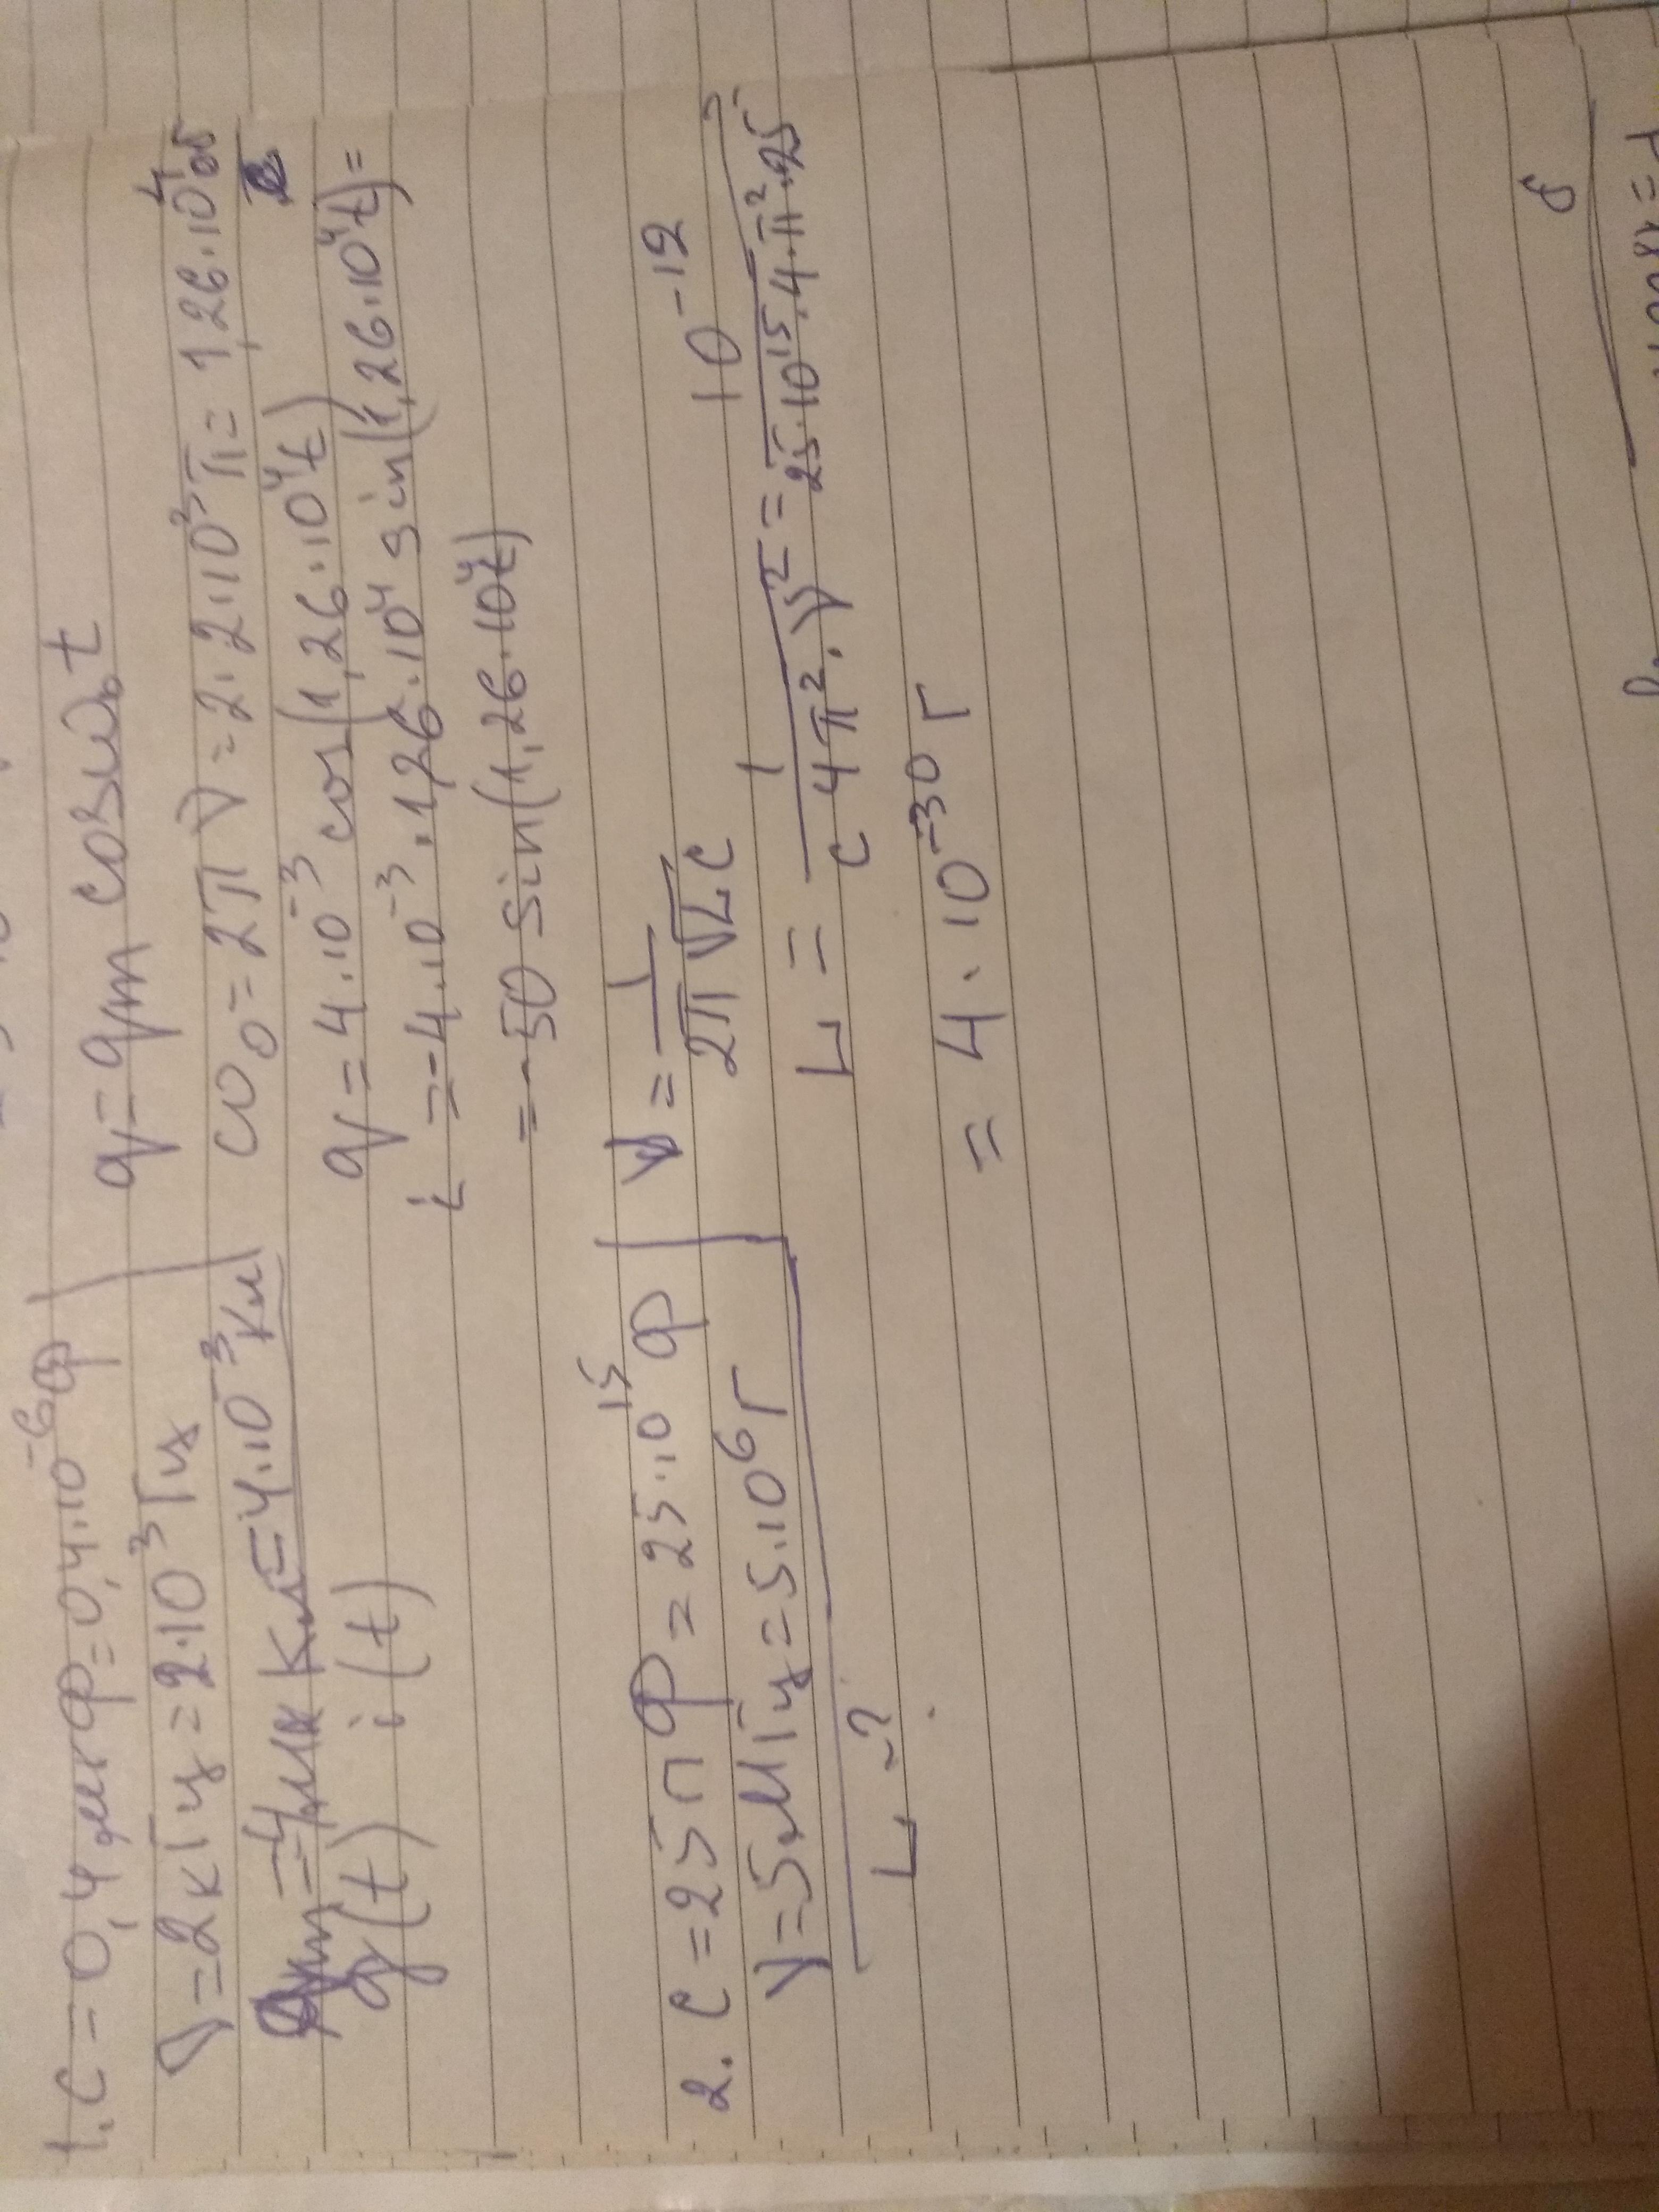 1. C = 0,4 мкф = 0,4·10⁻⁶ ф
ν = 2 кГц = 2·10³ Гц
qm = 4 мк Кл = 4·10⁻³ Кл
q(t) i(t)
q = qm cosω₀t
ω₀ = 2π ν = 2·2·10³ π = 1,26·10⁴
q = 4·10⁻³ cos(1,26·10⁴t)
i = -4·10⁻³·1,26·10⁴ sin(1,26·10⁴t) =
= -50 sin(1,26·10⁴t)
2. C = 25 п Ф = 25·10¹⁵ ф
ν = 5 МГц = 5·10⁶ Г
L - ?
ν = 1/2π√LC
10⁻¹²
L = 1/c 4π²·ν² = 25·10¹⁵·4·π²·25
= 4·10⁻³⁰ Г